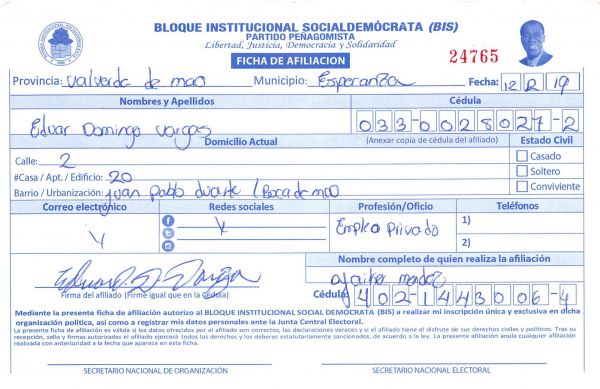 BLOQUE INSTITUCIONAL SOCIALDEMÓCRATA (BIS)
PARTIDO PEÑAGOMISTA
Libertad, Justicia, Democracia y Solidaridad
FICHA DE AFILIACION
24765
Provincia: Valverde de mao Municipio: Esperanza Fecha: 12 2 19
Nombres y Apellidos Cédula
Eduar Domingo Vargas 033-0028027-2
Domicilio Actual (Anexar copia de cédula del afiliado) Estado Civil
Calle: 2 Casado
#Casa / Apt. / Edificio: 20 Soltero
Barrio / Urbanización: juan pablo duarte / Boca de mao Conviviente
Correo electrónico Redes sociales Profesión/Oficio Teléfonos
Empleo Privado 1)
2)
Nombre completo de quien realiza la afiliación
Firma del afiliado (Firme igual que en la cédula)
Cédula: 402-1443006-4
Mediante la presente ficha de afiliación autorizo al BLOQUE INSTITUCIONAL SOCIAL DEMÓCRATA (BIS) a realizar mi inscripción única y exclusiva en dicha
organización política, así como a registrar mis datos personales ante la Junta Central Electoral.
La presente ficha de afiliación es válida si los datos ofrecidos por el afiliado son correctos, las declaraciones veraces y si el afiliado tiene el disfrute de sus derechos civiles y políticos. Tras su
recepción, sello y firmas autorizadas el afiliado ejercerá todos los derechos y los deberes estatutariamente sancionados, de acuerdo a la ley. La presente afiliación anula cualquier afiliación
realizada con anterioridad a la fecha que aparece en esta ficha.
SECRETARIO NACIONAL DE ORGANIZACIÓN SECRETARIO NACIONAL ELECTORAL